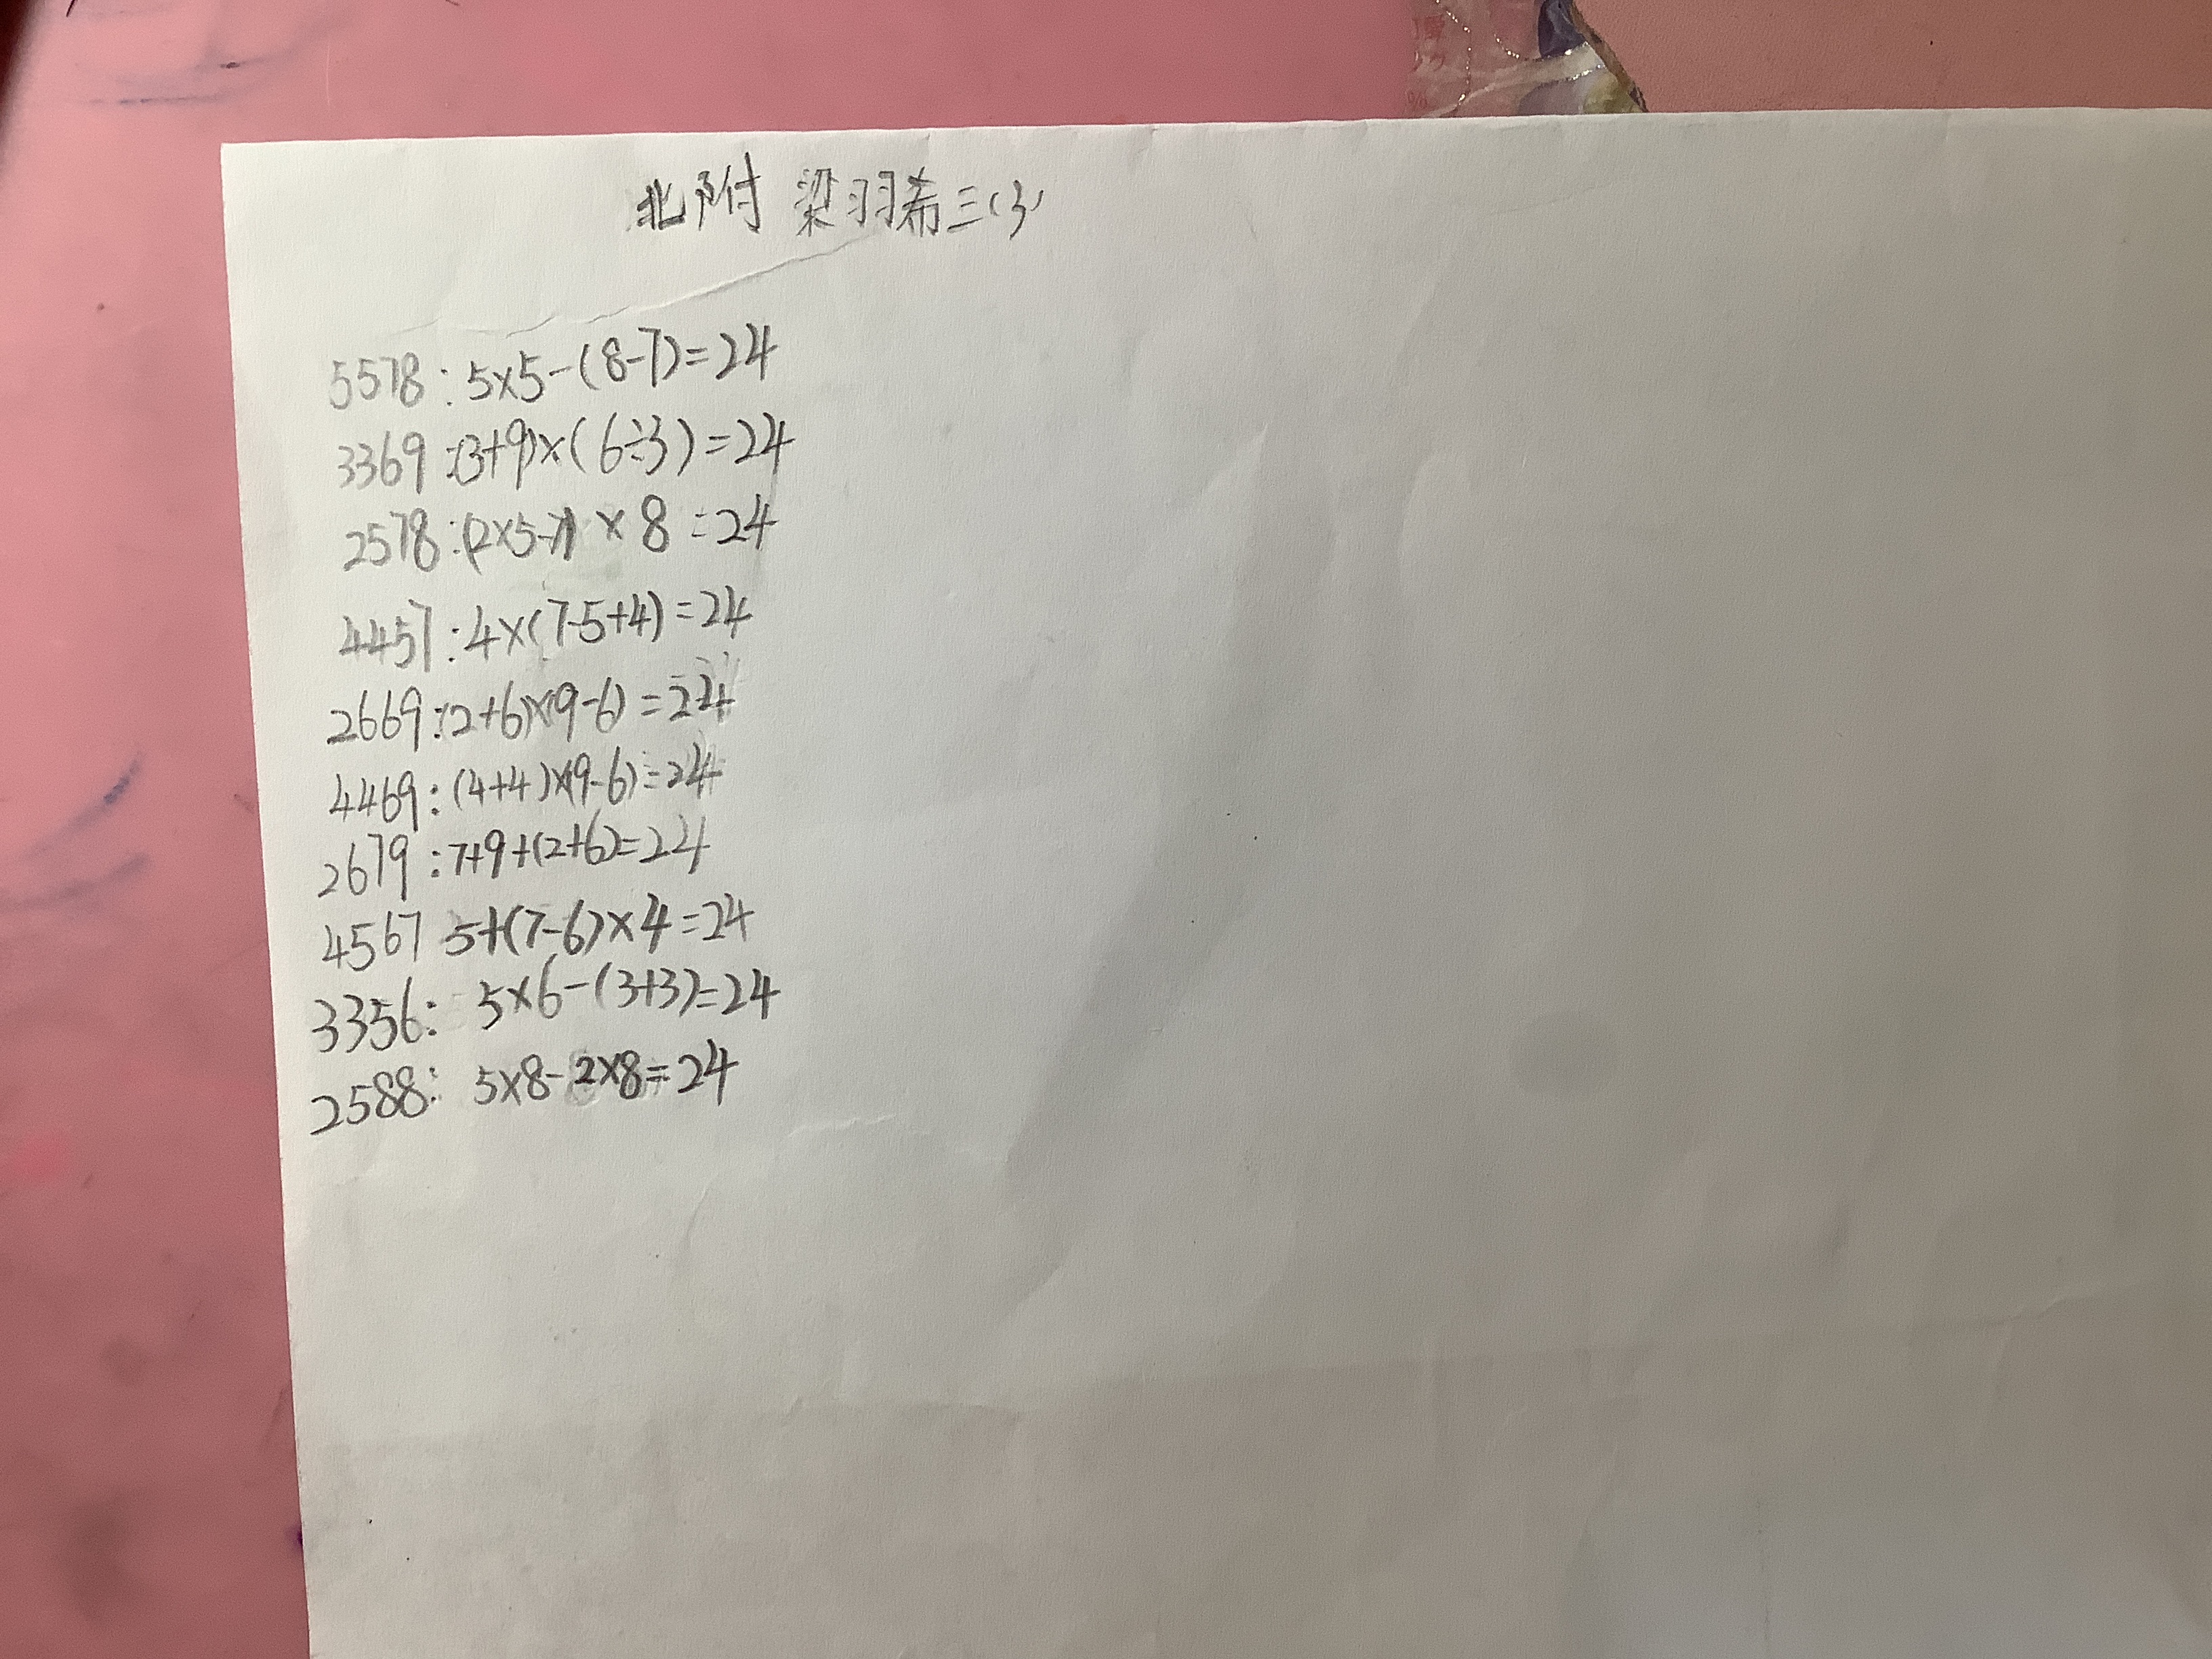 北附 梁羽希三(3)
5578:5×5-(8-7)=24
3369:(3+9)×(6÷3)=24
2578:(2×5-7)×8=24
4457:4×(7-5+4)=24
2669:(2+6)×(9-6)=24
4469:(4+4)×(9-6)=24
2679:7+9+(2+6)=24
4567 5+(7-6)×4=24
3356: 5×6-(3+3)=24
2588: 5×8-2×8=24